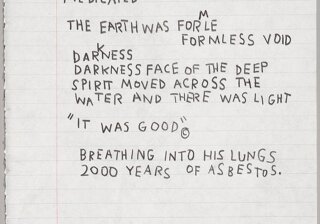 THE EARTH WAS FORMLE
FORMLESS VOID
DARKNESS
DARKNESS FACE OF THE DEEP
SPIRIT MOVED ACROSS THE
WATER AND THERE WAS LIGHT
"IT WAS GOOD"©
BREATHING INTO HIS LUNGS
2000 YEARS OF ASBESTOS.